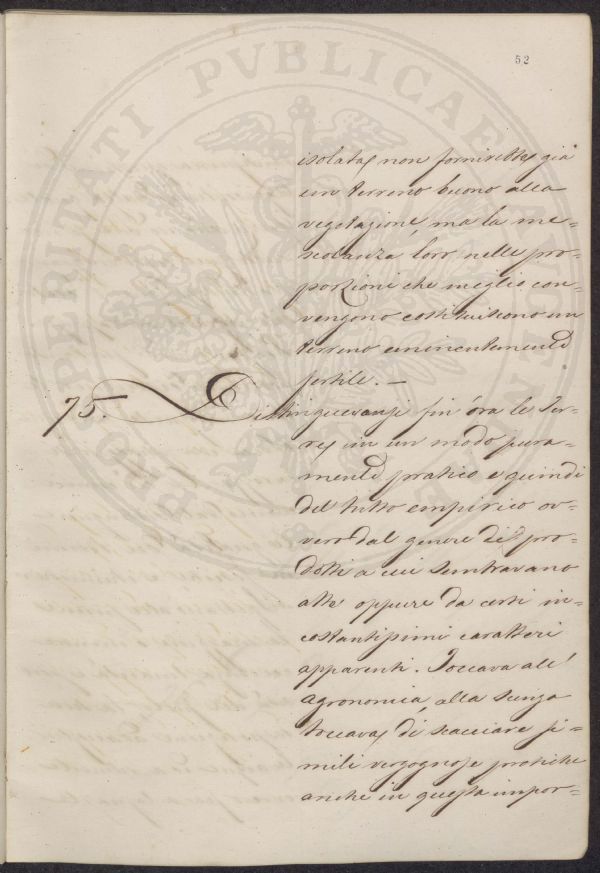 52
isolata, non fornirebbe già
un terreno buono alla
vegetazione, ma la me=
scolanza loro nelle pro=
porzioni che meglio con=
vengono costituiscono un
terreno eminentemente
fertile. —
75. Distinguevansi fin'ora le Ter=
re, in un modo pura=
mente pratico e quindi
del tutto empirico ov=
vero dal genere di pro=
dotti a cui sembravano
atte oppure da certi in=
costantissimi caratteri
apparenti. Toccava all'
agronomia, alla scienza
toccava, di scacciare si=
mili vergognose pratiche
anche in questa impor=
PROSPERITATI PVBLICAE